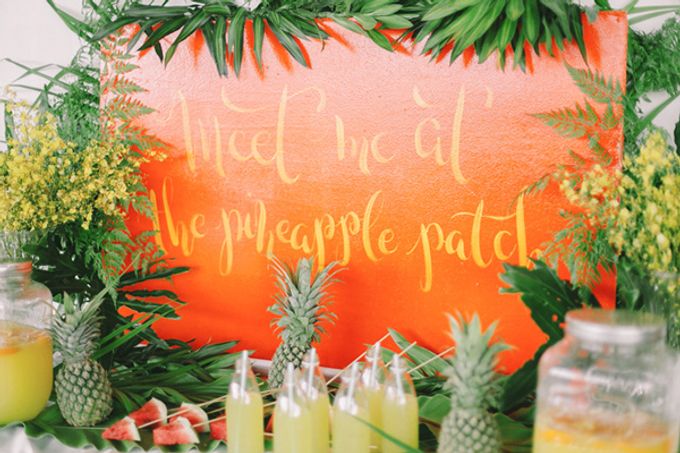 Meet me at
the pineapple patch